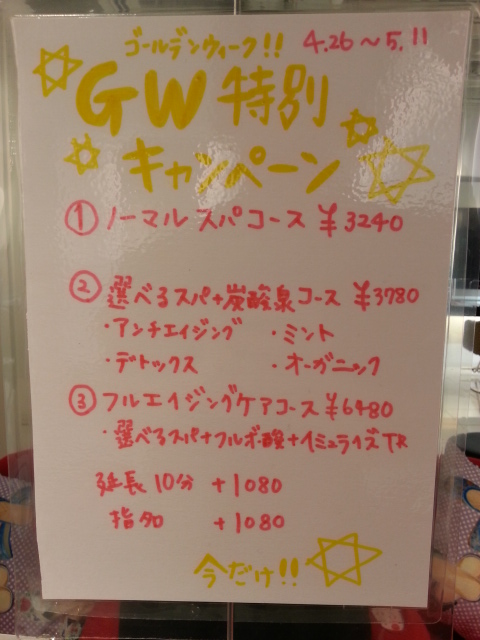 ゴールデンウィーク!! 4.26～5.11
GW特別
キャンペーン
① ノーマルスパコース ¥3240
② 選べるスパ+炭酸泉コース ¥3780
・アンチエイジング ・ミント
・デトックス ・オーガニック
③ フルエイジングケアコース ¥6480
・選べるスパ+フルボ酸+イミュライズTR
延長10分 +1080
指名 +1080
今だけ!!